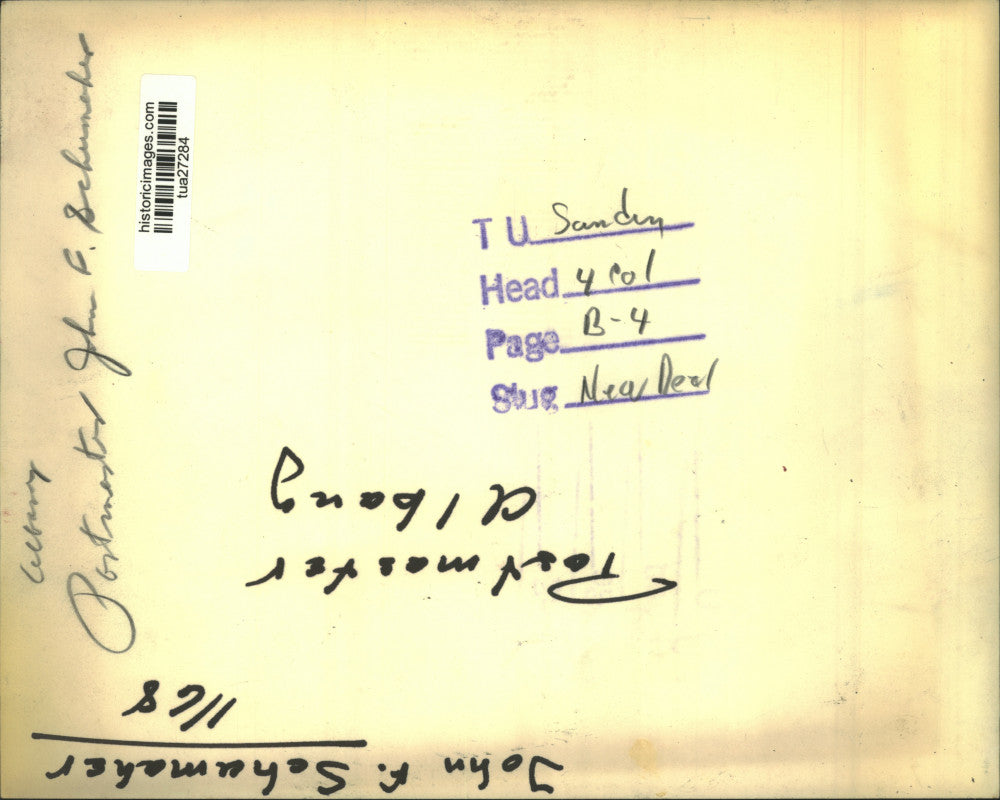 historicimages.com
tua27284
Albany
Postmaster John F. Schumaker
T U Sunday
Head 4 Col
Page B-4
Slug New Deal
John F. Schumaker
1/68
Postmaster
Albany